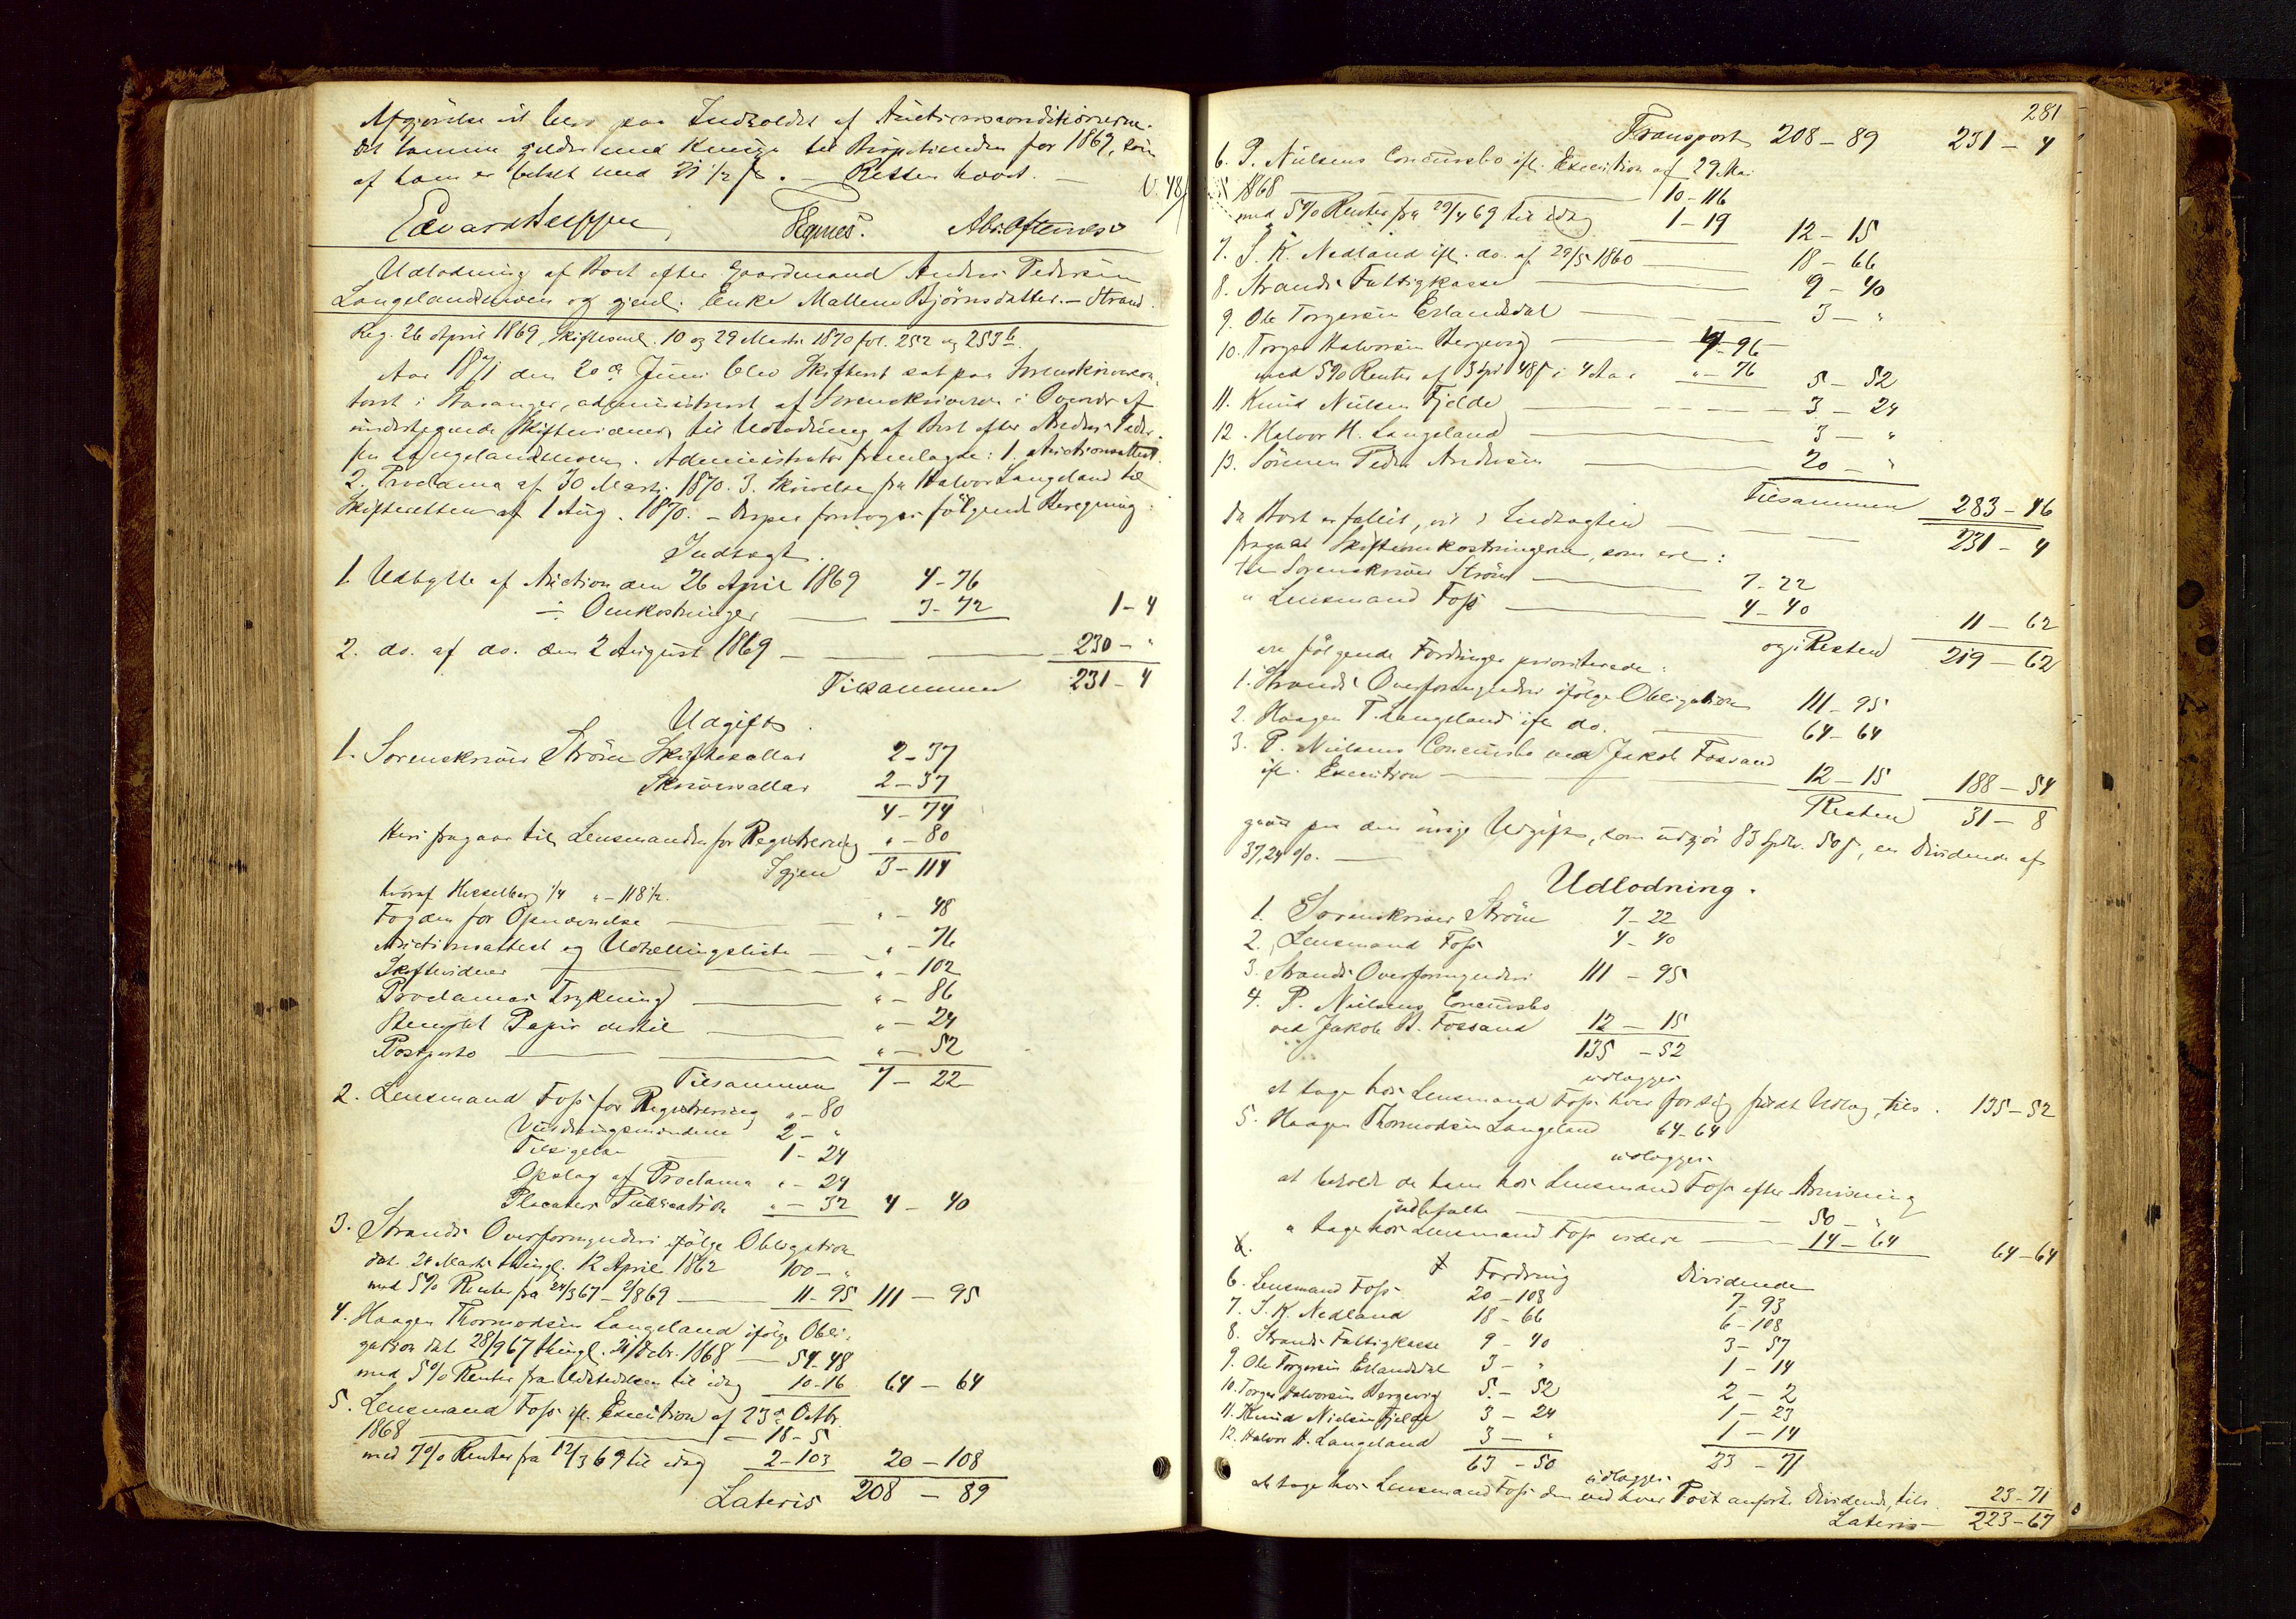 Afgjørelse vil bero paa Indholdet af Auctionsconditionerne.
af ham er betalt med 21 1/2 β. – Retten hævet. –
V. 48/
Udlodning af Boet efter Gaardmand Anders Pedersen
Langelandsmoen og gjenl. Enke Mallene Bjørnsdatter. – Strand.
Reg. 26 April 1869, Skiftesaml. 10 og 29 Marts 1870 fol. 252 og 253 b.
Aar 1871 den 20de Juni blev Skifteret sat paa Sorenskrivercon-
toret i Stavanger, administreret af Sorenskriveren i Overvær af
undertegnede Skiftevidner, til Udlodning af Boet efter Anders Peder-
sen Langelandsmoen. Administrator fremlagde: 1. Auctionsattest.
2. Proclama af 30 Marts 1870. 3. Skrivelse fra Halvor Langeland til
Skifteretten af 1 Aug. 1870. – Derpaa foretoges følgende Beregning:
Indtægt.
1. Udbytte af Auction den 26 April 1869 4-76
÷ Omkostninger 3-72 1-4
2. do. af do. den 2 August 1869 230 - "
Tilsammen 231-4
Udgift.
1. Sorenskriver Strøm Skiftesallar 2-37
Skriversallar 2-37
4-74
Heri fragaar til Lensmanden for Registrering " - 80
Igjen 3-114
hvoraf Hesselberg 1/4 " - 118 1/2.
Fogden for Opnævnelse " - 48
Auctionsattest og Udtællingsliste " - 76
Skiftevidner " - 102
Proclamas Trykning " - 86
Stemplet Papir dertil " - 24
Postporto " - 52
Tilsammen 7-22
2. Lensmand Foss for Registrering " - 80
Vurderingsmændene 2 - "
Tilsigelse 1-24
Opslag af Proclama " - 24
Placaters Publication " - 32 4 - 40
3. Strands Overformynderi ifølge Obligation
dat. 24 Marts thingl. 12 April 1862 100 - "
med 5% Renter fra 24/3 67 – 2/8 69 11-95 111 - 95
4. Haagen Thormodsen Langeland ifølge Obli-
gation dat. 28/9 67 thingl. 21/Debr. 1868 54-48
med 5% Renter fra Udstedelsen til idag 10-16 64 - 64
5. Lensmand Foss ifl. Execution af 23de Octbr.
1868 18-5
med 7% Renter fra 12/3 69 til idag 2-103 20-108
Lateris 208 - 89
281
Transport 208-89 231-4
6. P. Nielsens Concursbo ifl. Execution af 29 Mai
1868 10-116
med 5% Renter fra 29/4 69 til idag 1-19 12-15
7. S. K. Nedland ifl. do. af 29/5 1860 18-66
8. Strands Fattigkasse 9-40
9. Ole Torgersen Erlandsdal 3 - "
10. Torger Halvorsen Bergevig 4-96
med 5% Renter af 3 Spd 48 β i 4 Aar " - 76 5-52
11. Knud Nielsen Fjelde 3-24
12. Halvor H. Langeland 3 - "
13. Sønnen Peder Andersen 20 - "
Tilsammen 283-46
Da Boet er fallit, vil i Indtægten 231-4
fragaae Skifteomkostningerne, som ere:
til Sorenskriver Strøm 7-22
" Lensmand Foss 4-40 11-62
og i Resten 219-62
ere følgende Fordringer prioriterede:
1. Strands Overformynderi ifølge Obligation 111-95
2. Haagen T. Langeland ifl. do. 64-64
3. P. Nielsens Concursbo ved Jakob Fossand
ifl. Execution 12-15 188-54
Resten 31-8
giver paa den øvrige Udgift, som udgjør 83 Spdlr. 50 β, en Dividende af
37,24 %.
Udlodning.
1. Sorenskriver Strøm 7-22
2. Lensmand Foss 4-40
3. Strands Overformynderi 111-95
4. P. Nielsens Concursbo
ved Jakob B. Fossand 12-15
135-52
udlægges
at tage hos Lensmand Foss hver for sig fuldt Udlæg, tils. 135-52
5. Haagen Thormodsen Langeland 64-64
udlægges
at beholde de ham hos Lensmand Foss efter Anvisning
udbetalte 50 - "
" tage hos Lensmand Foss videre 14-64 64-64
Fordring Dividende
6. Lensmand Foss 20-108 7-93
7. S. K. Nedland 18-66 6-108
8. Strands Fattigkasse 9-40 3-57
9. Ole Torgersen Erlandsdal 3 - " 1-14
10. Torger Halvorsen Bergevig 5-52 2-2
11. Knud Nielsen Fjelde 3-24 1-23
12. Halvor H. Langeland 3 - " 1-14
63-50 23-71
udlægges
at tage hos Lensmand Foss den ved hver Post anførte Dividende, tils. 23-71
Lateris 223-67